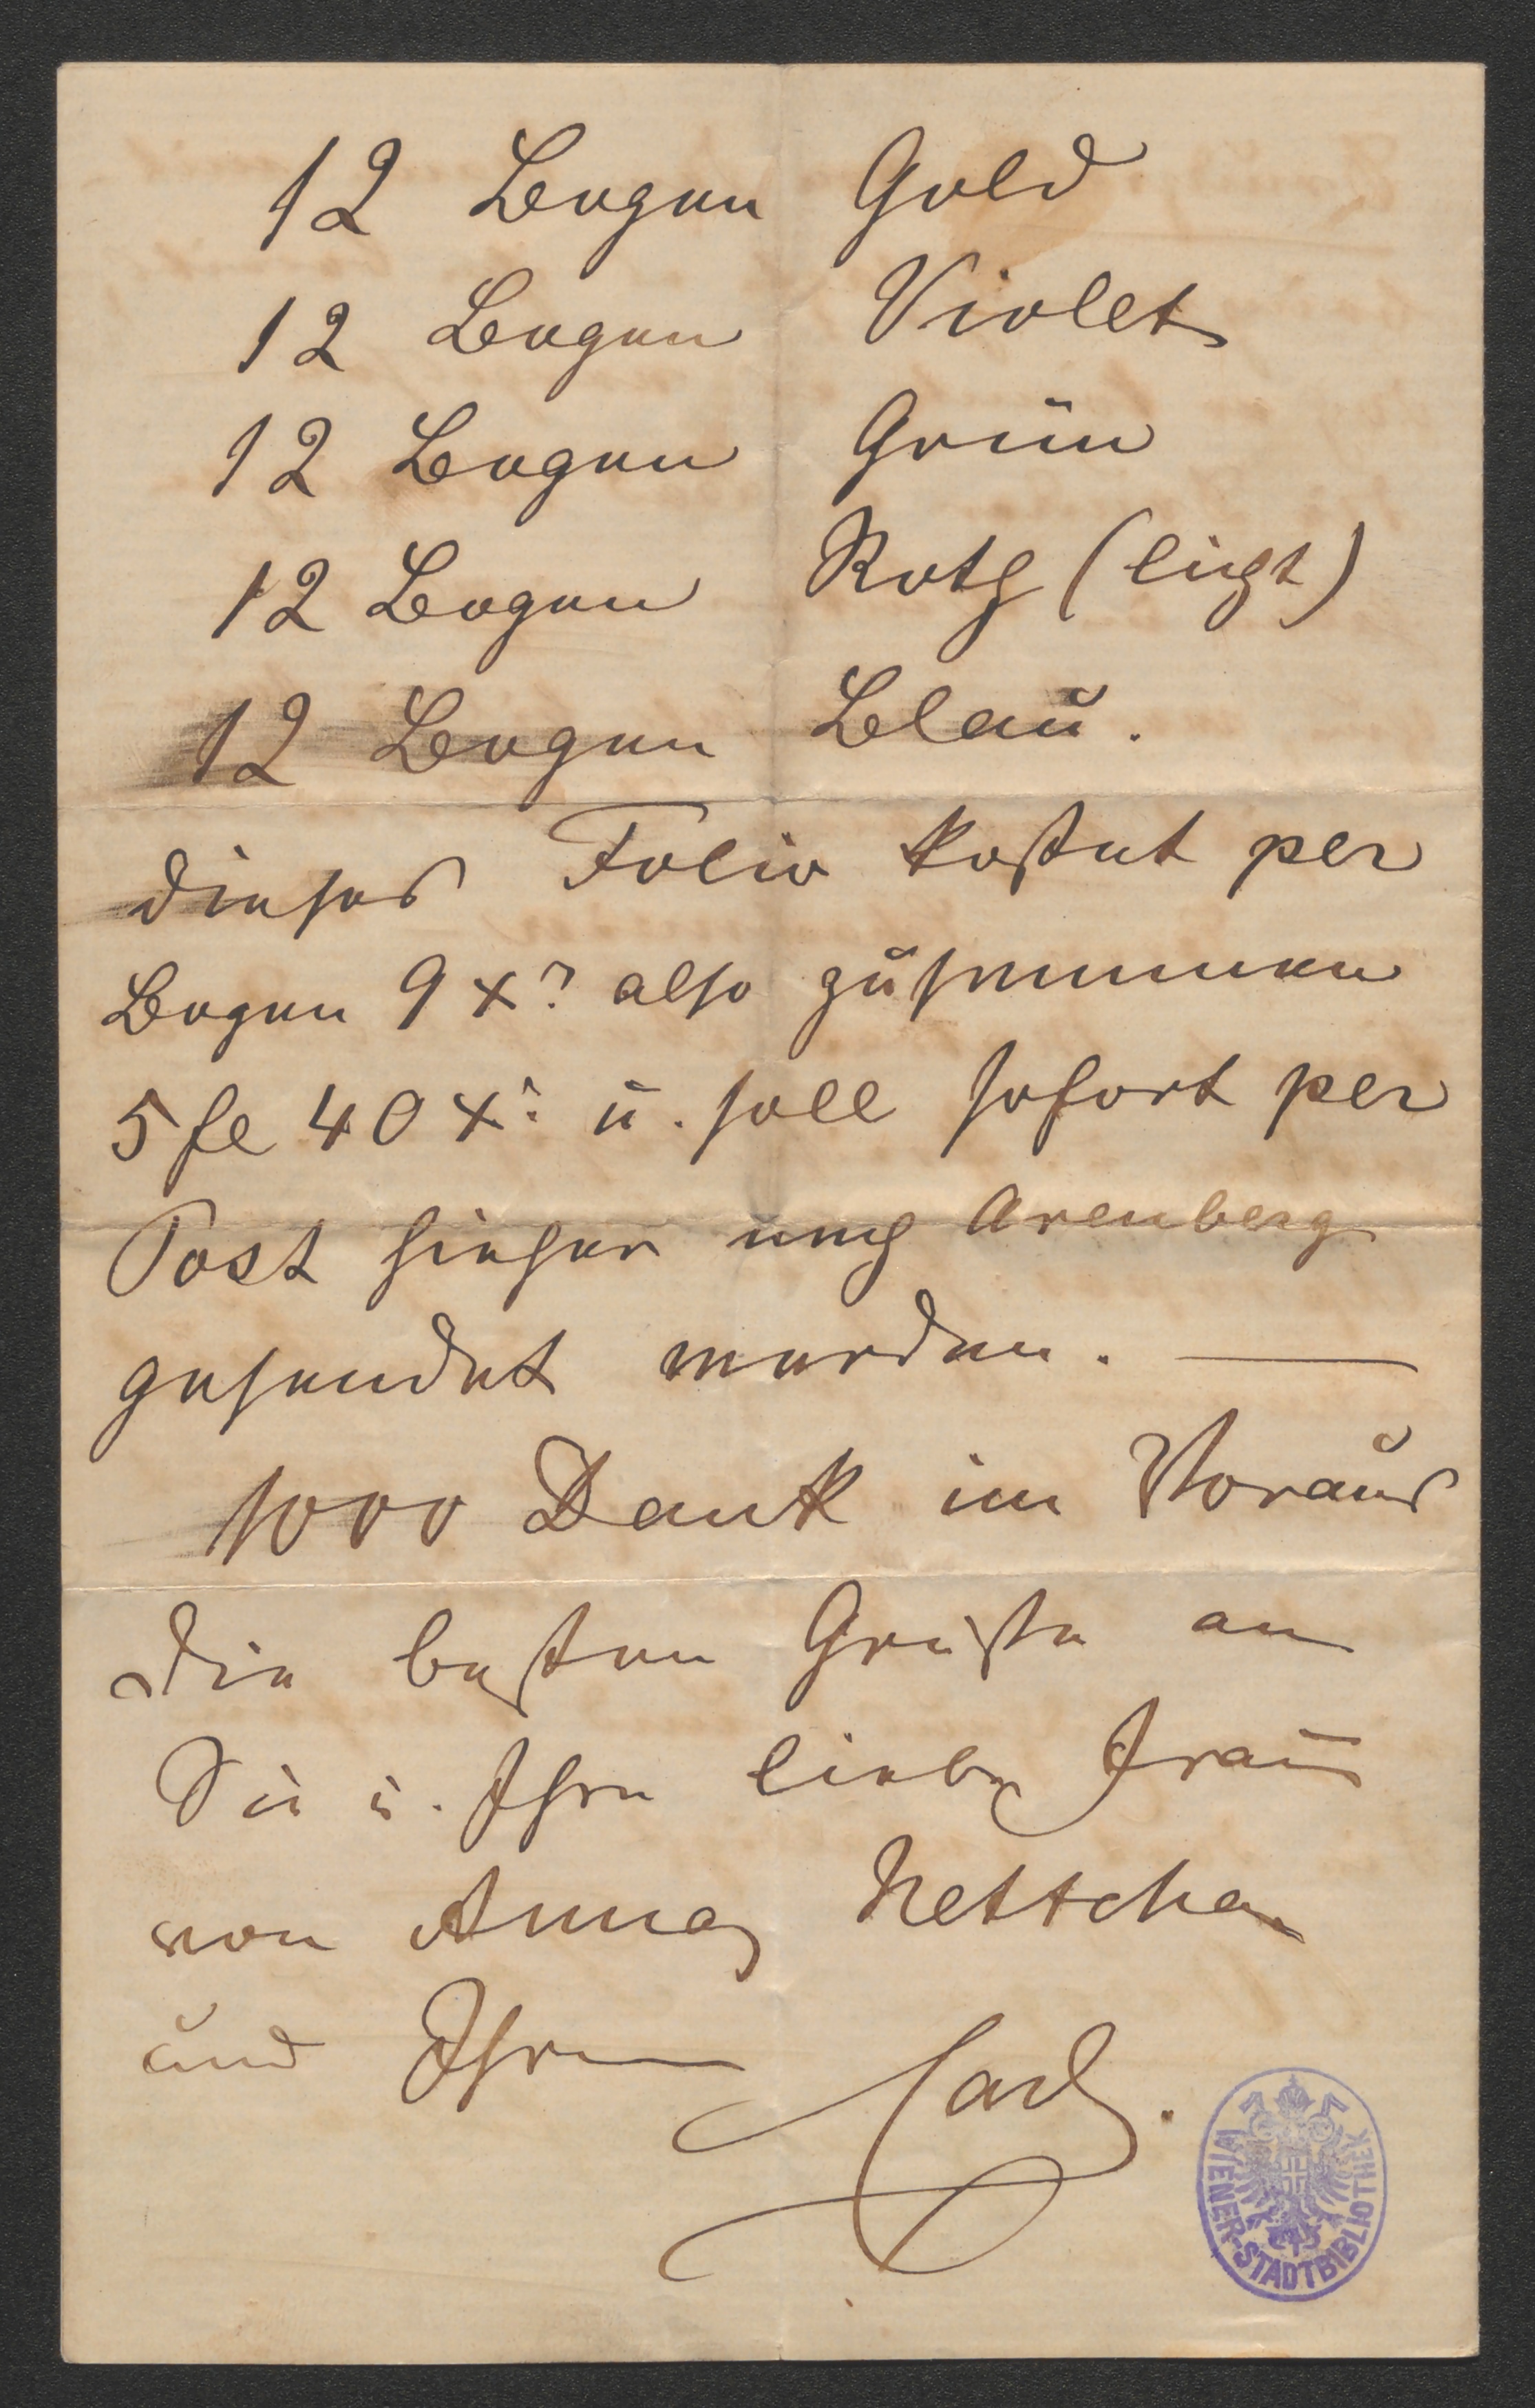 12 Bogen Gold
12 Bogen Violet
12 Bogen Grün
12 Bogen Roth (licht)
12 Bogen Blau.
dieses Folio kostet per
Bogen 9 x: also zusammen
5 fl 40 x: u. soll sofort per
Post hieher nach Arenberg
gesendet werden. —
1000 Dank im Voraus
Die besten Grüße an
Sie u. Ihre liebe Frau
von Anna, Nettchen
und Ihrem
Carl.
WIENER-STADTBIBLIOTHEK